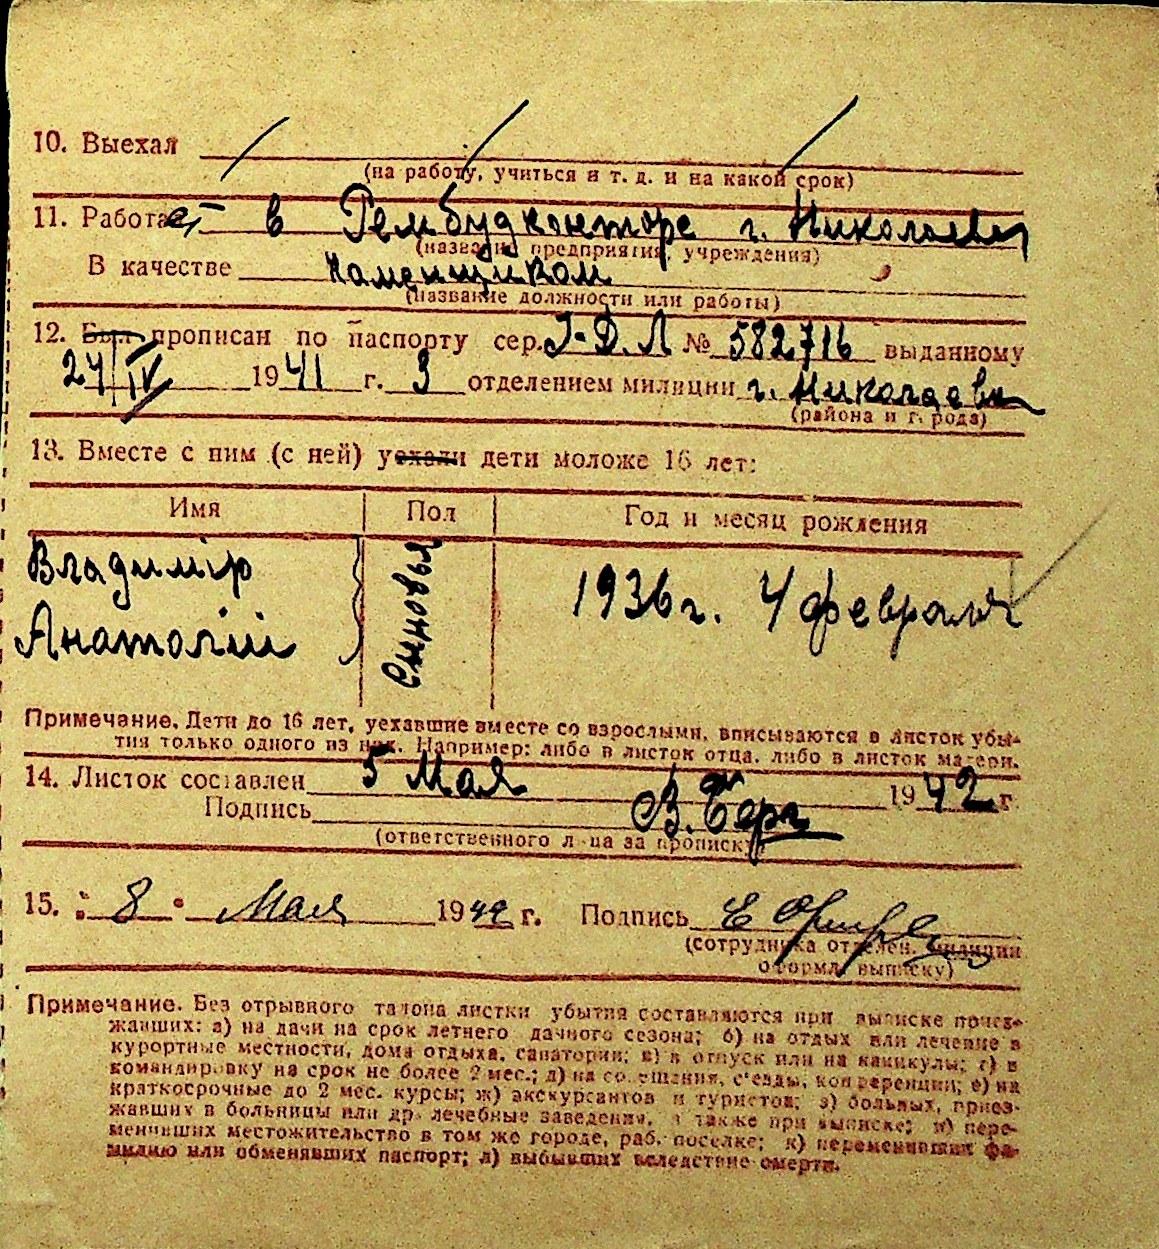 10. Выехал
(на работу, учиться и т. д. и на какой срок)
11. Работает в Рембудконторе г. Николаева
(название предприятия, учреждения)
В качестве каменщиком
(название должности или работы)
12. Был прописан по паспорту сер. I-Д.Л № 582716 выданному
24/IV 1941 г. 3 отделением милиции г. Николаева
(района и города)
13. Вместе с ним (с ней) уехали дети моложе 16 лет:
Имя Пол Год и месяц рождения
Владимір сыновья 1936 г. 4 февраля
Анатолій
Примечание. Дети до 16 лет, уехавшие вместе со взрослыми, вписываются в листок убы-
тия только одного из них. Например: либо в листок отца, либо в листок матери.
14. Листок составлен 5 Мая 1942 г.
Подпись В. Берг
(ответственного лица за прописку)
15. "8" Мая 1942 г. Подпись Е
(сотрудника отделен. милиции
оформл. выписку)
Примечание. Без отрывного талона листки убытия составляются при выписке приез-
жавших: а) на дачи на срок летнего дачного сезона; б) на отдых или лечение в
курортные местности, дома отдыха, санатории; в) в отпуск или на каникулы; г) в
командировку на срок не более 2 мес.; д) на совещания, с'езды, конференции; е) на
краткосрочные до 2 мес. курсы; ж) экскурсантов и туристов; з) больных, приез-
жавших в больницы или др. лечебные заведения, а также при выписке; и) пере-
менивших местожительство в том же городе, раб. поселке; к) переменивших фа-
милию или обменявших паспорт; л) выбывших вследствие смерти.